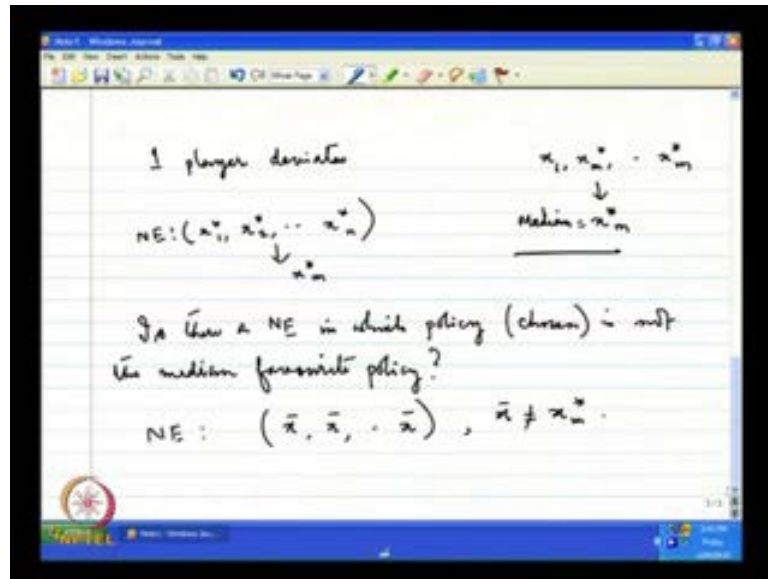 Note1 - Windows Journal
File Edit View Insert Actions Tools Help
1 player deviates
x₁, x*ₘ, .. x*ₘ
↓
Median = x*ₘ
NE: (x*₁, x*₂, .. x*ₙ)
↓
x*ₘ
Is there a NE in which policy (chosen) is not
the median favourite policy?
NE : (x̄, x̄, .. x̄) , x̄ ≠ x*ₘ .
NPTEL